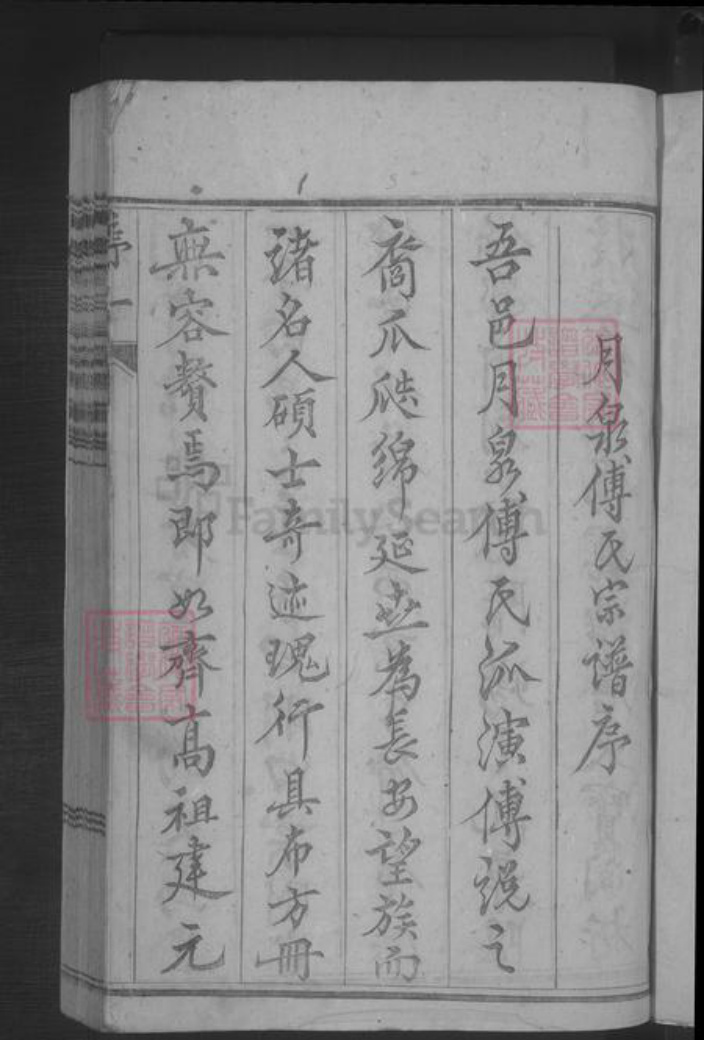 月泉傅氏宗譜序
吾邑月泉傅氏派演傅說之
裔瓜瓞綿延世為長安望族而
諸名人碩士奇迹瑰行具布方冊
無容贅焉即如齊高祖建元
序一
FamilySearch